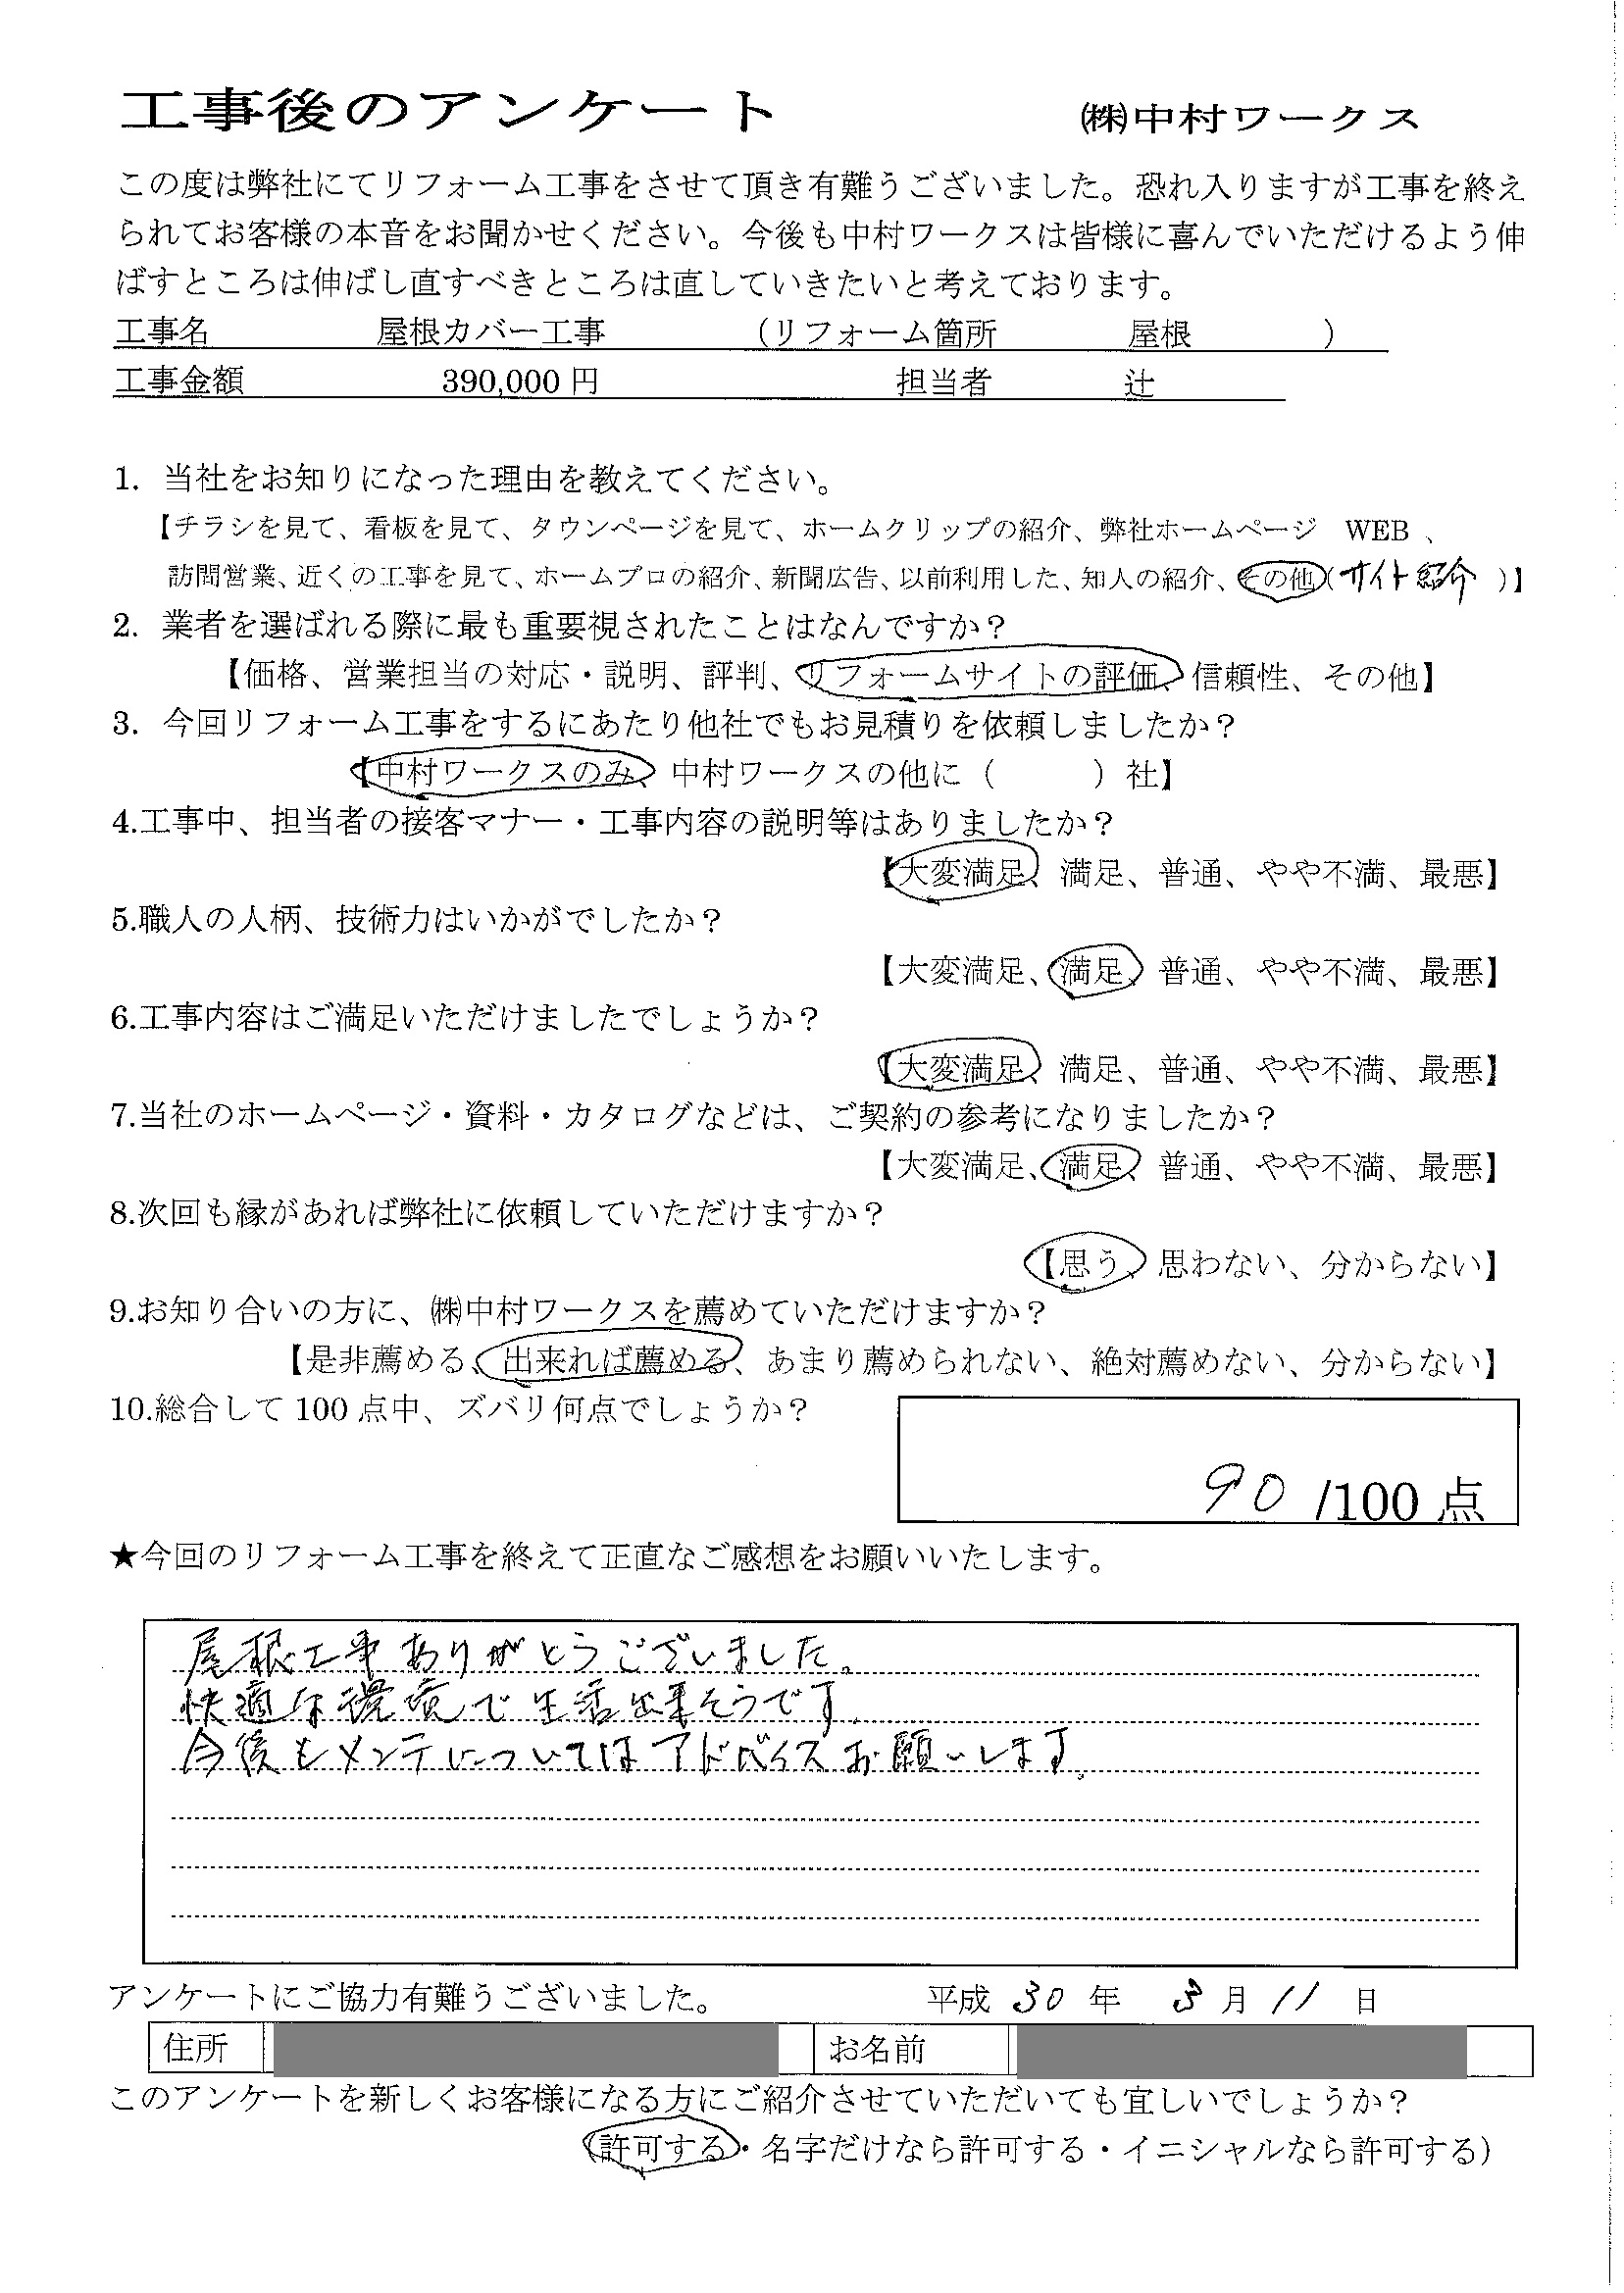 工事後のアンケート ㈱中村ワークス
この度は弊社にてリフォーム工事をさせて頂き有難うございました。恐れ入りますが工事を終え
られてお客様の本音をお聞かせください。今後も中村ワークスは皆様に喜んでいただけるよう伸
ばすところは伸ばし直すべきところは直していきたいと考えております。
工事名 屋根カバー工事 （リフォーム箇所 屋根 ）
工事金額 390,000 円 担当者 辻
1. 当社をお知りになった理由を教えてください。
【チラシを見て、看板を見て、タウンページを見て、ホームクリップの紹介、弊社ホームページ WEB 、
訪問営業、近くの工事を見て、ホームプロの紹介、新聞広告、以前利用した、知人の紹介、その他（サイト紹介 ）】
2. 業者を選ばれる際に最も重要視されたことはなんですか？
【価格、営業担当の対応・説明、評判、リフォームサイトの評価、信頼性、その他】
3. 今回リフォーム工事をするにあたり他社でもお見積りを依頼しましたか？
【中村ワークスのみ、中村ワークスの他に（ ）社】
4.工事中、担当者の接客マナー・工事内容の説明等はありましたか？
【大変満足、満足、普通、やや不満、最悪】
5.職人の人柄、技術力はいかがでしたか？
【大変満足、満足、普通、やや不満、最悪】
6.工事内容はご満足いただけましたでしょうか？
【大変満足、満足、普通、やや不満、最悪】
7.当社のホームページ・資料・カタログなどは、ご契約の参考になりましたか？
【大変満足、満足、普通、やや不満、最悪】
8.次回も縁があれば弊社に依頼していただけますか？
【思う、思わない、分からない】
9.お知り合いの方に、㈱中村ワークスを薦めていただけますか？
【是非薦める、出来れば薦める、あまり薦められない、絶対薦めない、分からない】
10.総合して 100 点中、ズバリ何点でしょうか？
90 /100 点
★今回のリフォーム工事を終えて正直なご感想をお願いいたします。
屋根工事ありがとうございました。
快適な環境で生活出来そうです。
今後もメンテについてはアドバイスお願いします。
アンケートにご協力有難うございました。 平成 30 年 3 月 11 日
住所 お名前
このアンケートを新しくお客様になる方にご紹介させていただいても宜しいでしょうか？
（許可する・名字だけなら許可する・イニシャルなら許可する）